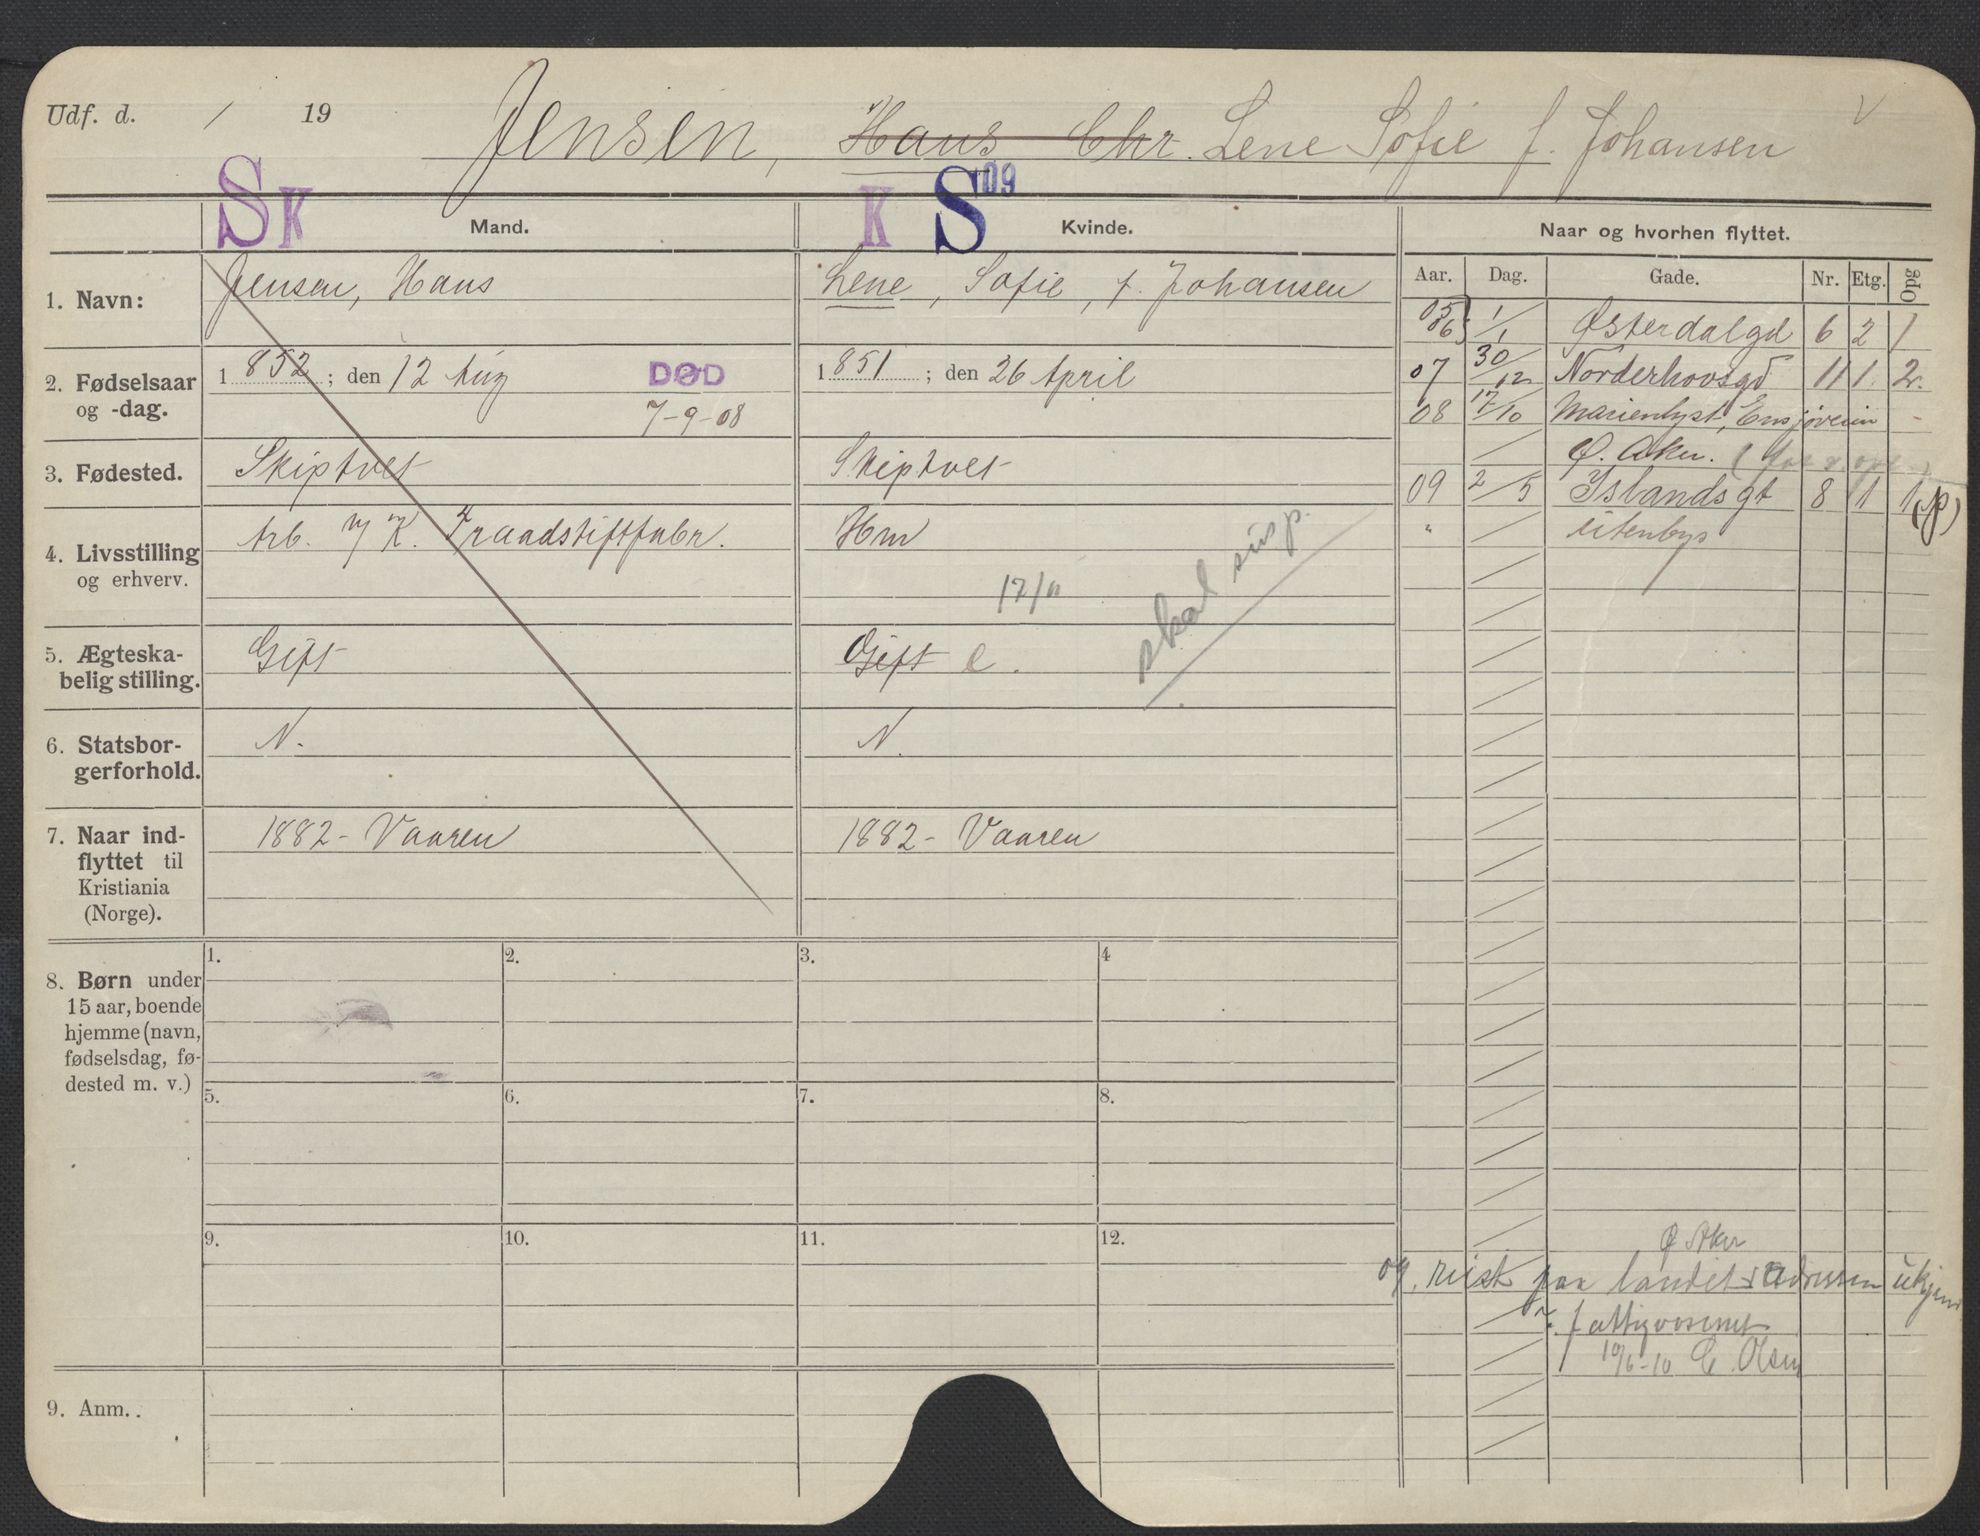 Udf. d. / 19
Jensen, Hans Chr. Lene Sofie f. Johansen
S K
K S 09
Mand.
Kvinde.
Naar og hvorhen flyttet.
Aar. Dag. Gade. Nr. Etg. Opg
1. Navn:
Jensen, Hans
Lene, Sofie, f. Johansen
2. Fødselsaar
og -dag.
1852; den 12 Aug DØD
7-9-08
1851; den 26 April
3. Fødested.
Skiptvet
Skiptvet
4. Livsstilling
og erhverv.
Arb. v/ K. Traadstiftfabr.
Hm
17/11
skal susp.
5. Ægteska-
belig stilling.
Gift
Gift e.
6. Statsbor-
gerforhold.
N.
N.
7. Naar ind-
flyttet til
Kristiania
(Norge).
1882 - Vaaren
1882 - Vaaren
05 06 1/1 Østerdalgd 6 2 1
07 30/12 Norderhovsgd 11 1 2
08 17/10 Marienlyst, Ensjøveien
Ø. Aker.
09 2/5 Islandsgt 8 1 1 (p)
" / utenbys
8. Børn under
15 aar, boende
hjemme (navn,
fødselsdag, fø-
dested m. v.)
1. 2. 3. 4
5. 6. 7. 8.
9. 10. 11. 12.
Ø Aker
09. reist paa landet adressen ukjend
f attigvæsenet
10/6-10 C. Olsen
9. Anm..